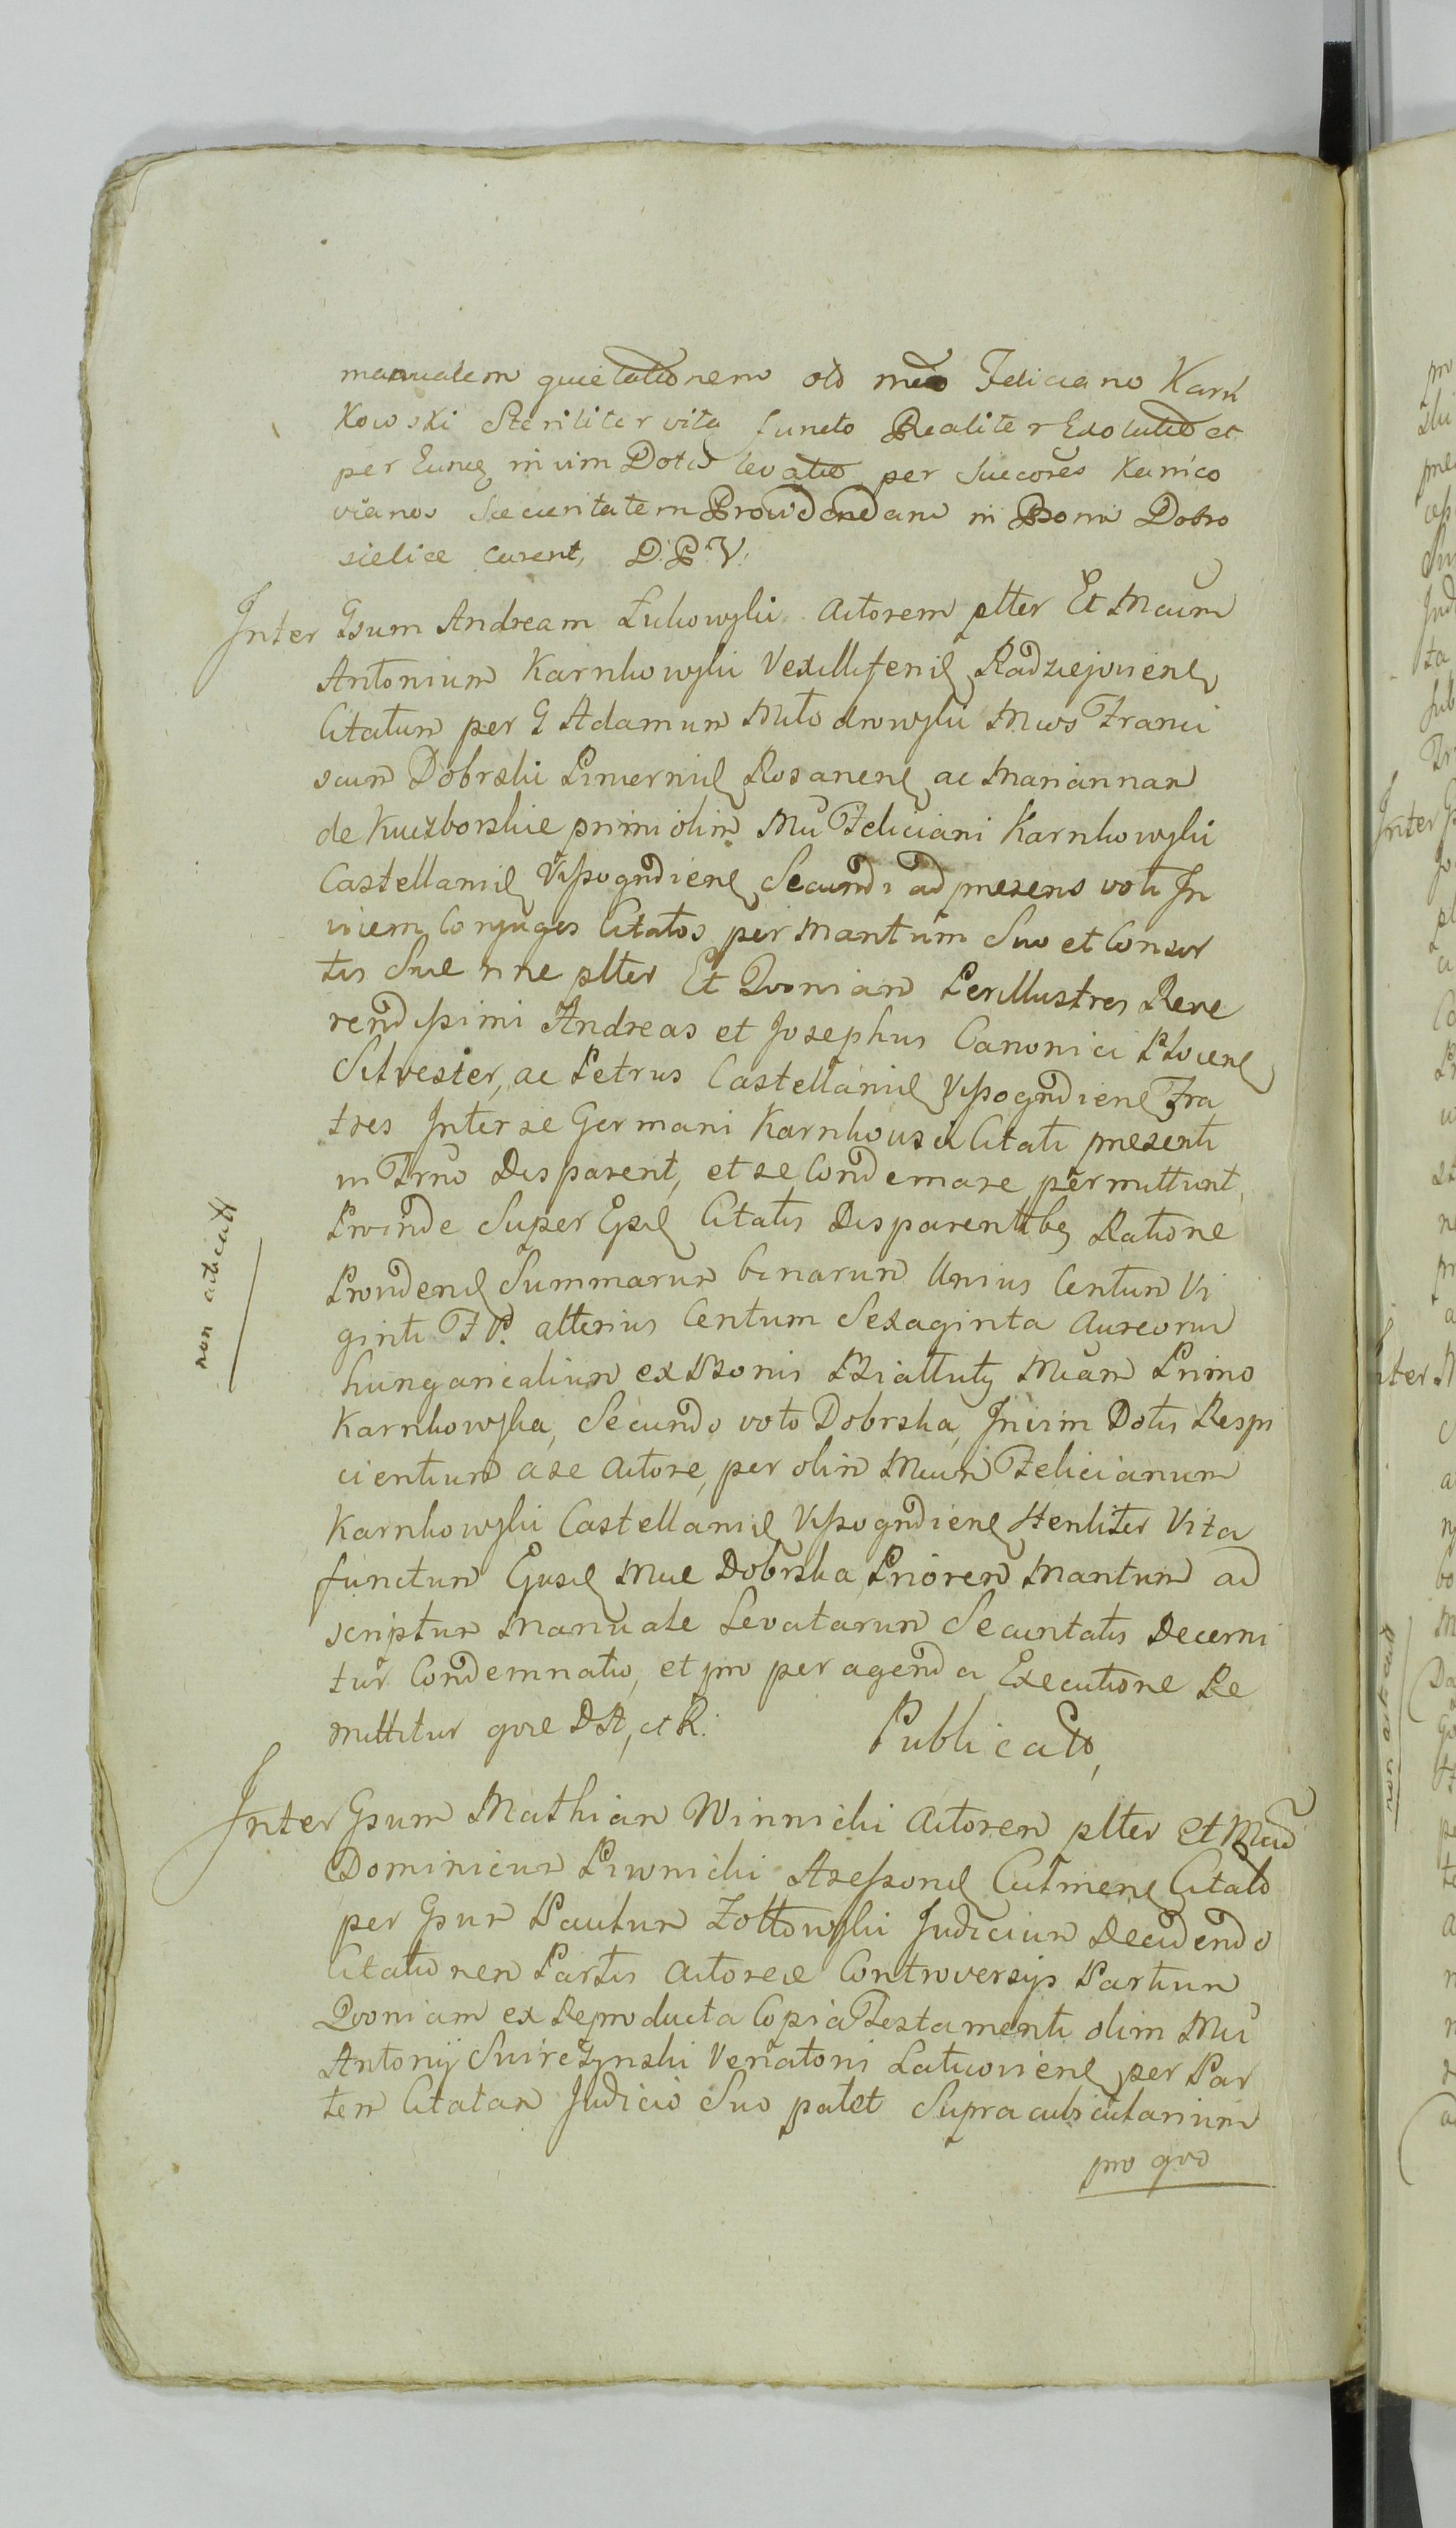 manualem quietationem olo mco Feliciano Karn
Kowski Steriliter vita functo Realiter Exolutio et
per Eunq in vim Dotis levatio per Succores Karnico
vianos Securitatem Providendam in Bonis Dobro
sielice carent, D. P. V.
Inter Gsum Andream Łukowski Actorem plter Et Mcum
Antonium Karnkowski Vexilliferid Radziejoviens
Citatum per G Adamum Młodnowski Mcos Franci
scum Dobrski Pincernid Rosanens ac Mariannam
de Kuczborskie primi olim Mci Feliciani Karnkowski
Castellanid Vissogrdiens Secundi ad presens voti In
vicem Conjuges Citatos per Maritum Suo et Consor
tis Sue nne plter Et Qvoniam Perillustres Reve
rendissimi Andreas et Josephus Canonici Plocens
Silvester, ac Petrus Castellanid Vissogrdiens Fra
tres Inter se Germani Karnkouscii Citati presenti
in Trno Disparent, et se Condemnare permittunt,
Proinde Super Ejsd Citatis Disparentibq Ratione
Providend Summarum binarum Unius Centum Vi
ginti F P. alterius Centum Sexaginta Aureorum
hungaricalium ex Bonis Białłuty Mcam Primo
Karnkowska, Secundo voto Dobrska, Invim Dotis Respi
cientium a se Actore, per olim Mcum Felicianum
Karnkowski Castellanid Vissogrdiens Steriliter Vita
functum Ejusd Mce Dobrska Priorem Maritum ad
scriptum Manuale Levatarum Securitatis Decerni
tur Condemnatio, et pro peragenda Executione Re
mittitur qvre DA, et R. Publicato,
non acticatt
Inter Gsum Mathiam Winnicki Actorem plter et Mcum
Dominicum Piwnicki Assessorid Culmens Citato
per Gsum Paulum Zołtowski Judicium Decidendo
Citationem Partis Actoree Controversys Partium
Qvoniam ex Reproducta Copia Testamenti olim Mci
Antonij Swirczynski Venatoris Latuoviens per Par
tem Citatam Judicio Suo patet Supra cubicularium
pro qvo